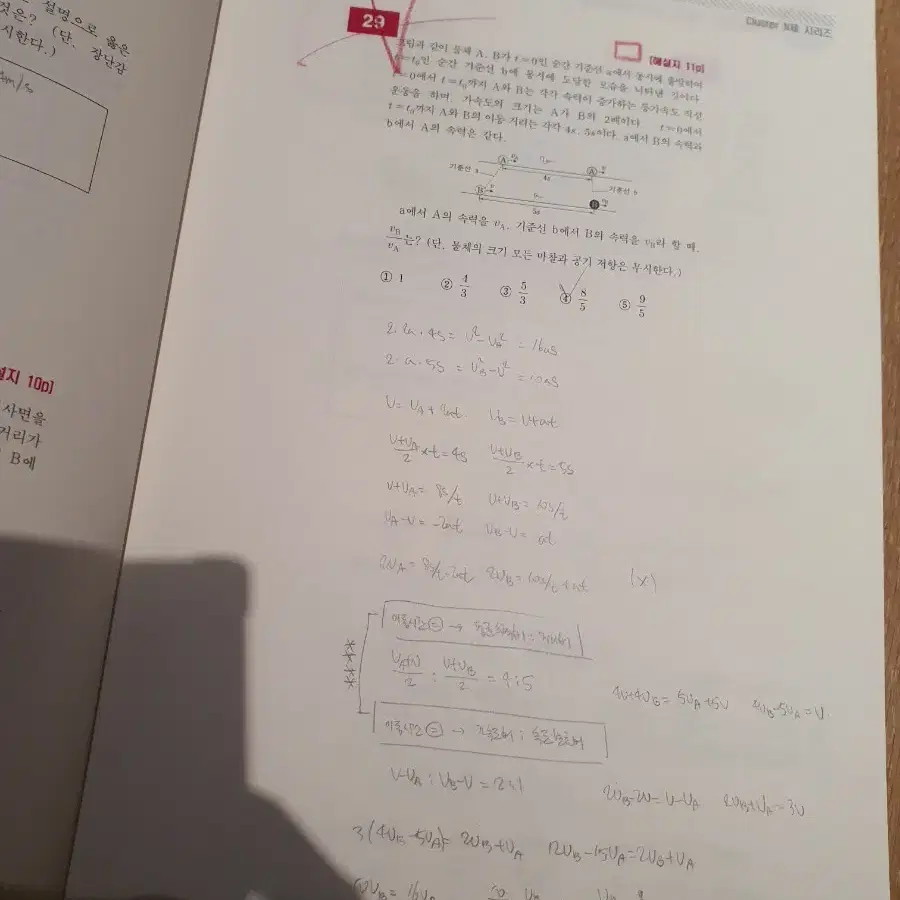 설명으로 옳은
것은? (단, 장난감
시한다.)
4m/s
설지 10p]
사면을
거리가
B에
29
Cluster N제 시리즈
[해설지 11p]
그림과 같이 물체 A, B가 t=0인 순간 기준선 a에서 동시에 출발하여
t=t₀인 순간 기준선 b에 동시에 도달한 모습을 나타낸 것이다.
t=0에서 t=t₀까지 A와 B는 각각 속력이 증가하는 등가속도 직선
운동을 하며, 가속도의 크기는 A가 B의 2배이다. t=0에서
t=t₀까지 A와 B의 이동 거리는 각각 4s, 5s이다. a에서 B의 속력과
b에서 A의 속력은 같다.
A 2a A
기준선 a 4s 기준선 b
B a B
5s
a에서 A의 속력을 v_A, 기준선 b에서 B의 속력을 v_B라 할 때,
v_B/v_A는? (단, 물체의 크기 모든 마찰과 공기 저항은 무시한다.)
① 1 ② 4/3 ③ 5/3 ④ 8/5 ⑤ 9/5
2·2a·4s = v²-v_A² = 16as
2·a·5s = v_B²-v² = 10as
v = v_A + 2at v_B = v+at
(v+v_A)/2 × t = 4s (v+v_B)/2 × t = 5s
v+v_A = 8s/t v+v_B = 10s/t
v_A-v = -2at v_B-v = at
2v_A = 8s/t-2at 2v_B = 10s/t+at (x)
이동시간 = →
(v_A+v)/2 : (v+v_B)/2 = 4:5
4v+4v_B = 5v_A+5v 4v_B-5v_A = v
이동시간 = → :
v-v_A : v_B-v = 2:1
2v_B-2v = v-v_A 2v_B+v_A = 3v
3(4v_B-5v_A) = 2v_B+v_A 12v_B-15v_A = 2v_B+v_A
10v_B = 16v_A